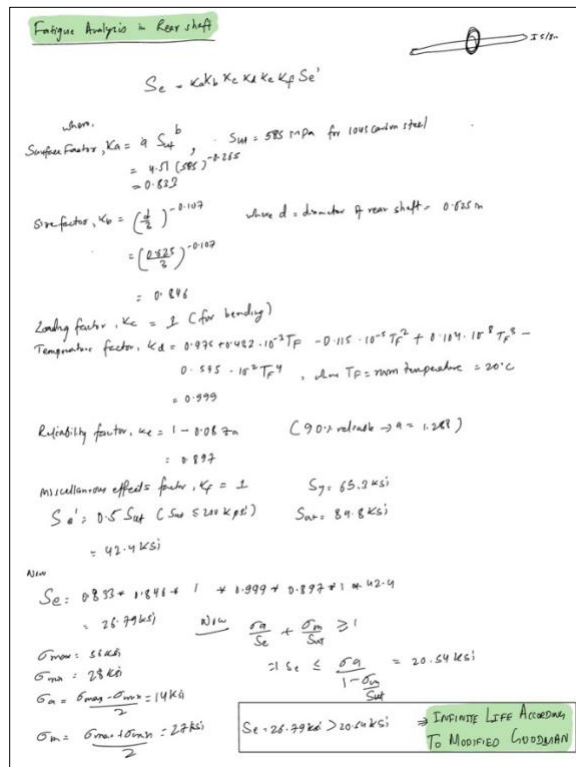 Fatigue Analysis in Rear shaft
Se = Ka Kb Kc Kd Ke Kf Se'
where,
Surface Factor, Ka = a Sut^b , Sut = 585 mpa for 1045 carbon steel
= 4.51 (585)^-0.265
= 0.833
Size factor, Kb = (d/3)^-0.107 where d = diameter of rear shaft = 0.625 in
= (0.625/3)^-0.107
= 0.846
Loading factor, Kc = 1 (for bending)
Temperature factor, Kd = 0.975 + 0.432 · 10^-3 TF - 0.115 · 10^-5 TF^2 + 0.104 · 10^-8 TF^3 -
0.595 · 10^2 TF^4 , where TF = room temperature = 20°C
= 0.999
Reliability factor, Ke = 1 - 0.08 Za (90% reliable → a = 1.288)
= 0.897
Miscellaneous effects factor, Kf = 1 Sy = 65.3 ksi
Se' = 0.5 Sut (Sut ≤ 200 kpsi) Sut = 84.8 ksi
= 42.4 ksi
Now
Se = 0.833 * 0.846 * 1 * 0.999 * 0.897 * 1 * 42.4
= 26.79 ksi Now σa/Se + σm/Sut ≥ 1
σmax = ksi
σmin = 28 ksi => Se ≤ σa/(1 - σm/Sut) = 20.54 ksi
σa = (σmax - σmin)/2 = 14 ksi
σm = (σmax + σmin)/2 = 27 ksi
Se = 26.79 ksi > 20.54 ksi ⇒ INFINITE LIFE ACCORDING
TO MODIFIED GOODMAN